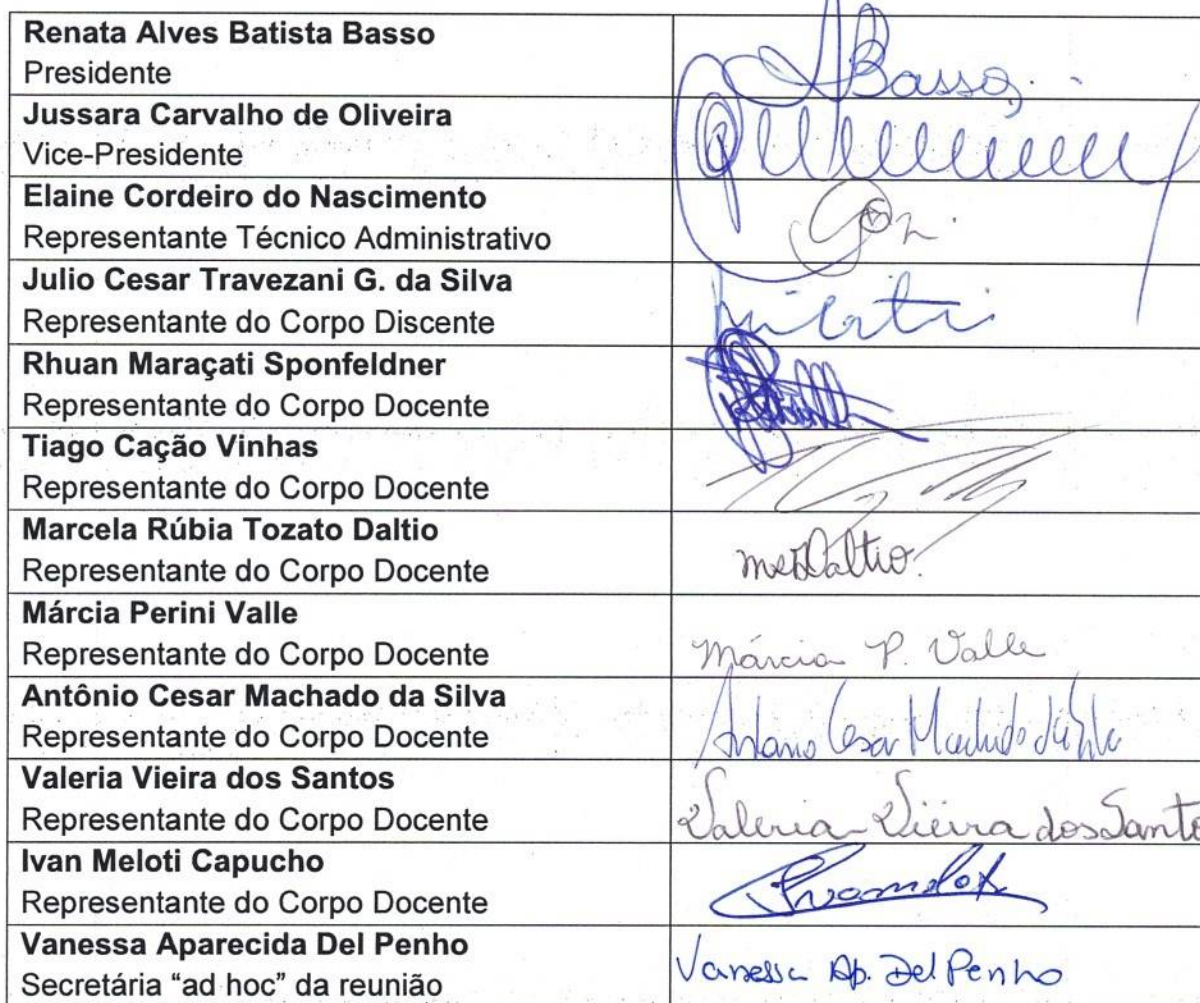 Renata Alves Batista Basso
Presidente
Basso
Jussara Carvalho de Oliveira
Vice-Presidente
Elaine Cordeiro do Nascimento
Representante Técnico Administrativo
Julio Cesar Travezani G. da Silva
Representante do Corpo Discente
Rhuan Maraçati Sponfeldner
Representante do Corpo Docente
Tiago Cação Vinhas
Representante do Corpo Docente
Marcela Rúbia Tozato Daltio
Representante do Corpo Docente
Márcia Perini Valle
Representante do Corpo Docente
Márcia P. Valle
Antônio Cesar Machado da Silva
Representante do Corpo Docente
Antonio Cesar Machado da Silva
Valeria Vieira dos Santos
Representante do Corpo Docente
Valeria Vieira dos Santo
Ivan Meloti Capucho
Representante do Corpo Docente
Vanessa Aparecida Del Penho
Secretária “ad hoc” da reunião
Vanessa Ap. Del Penho